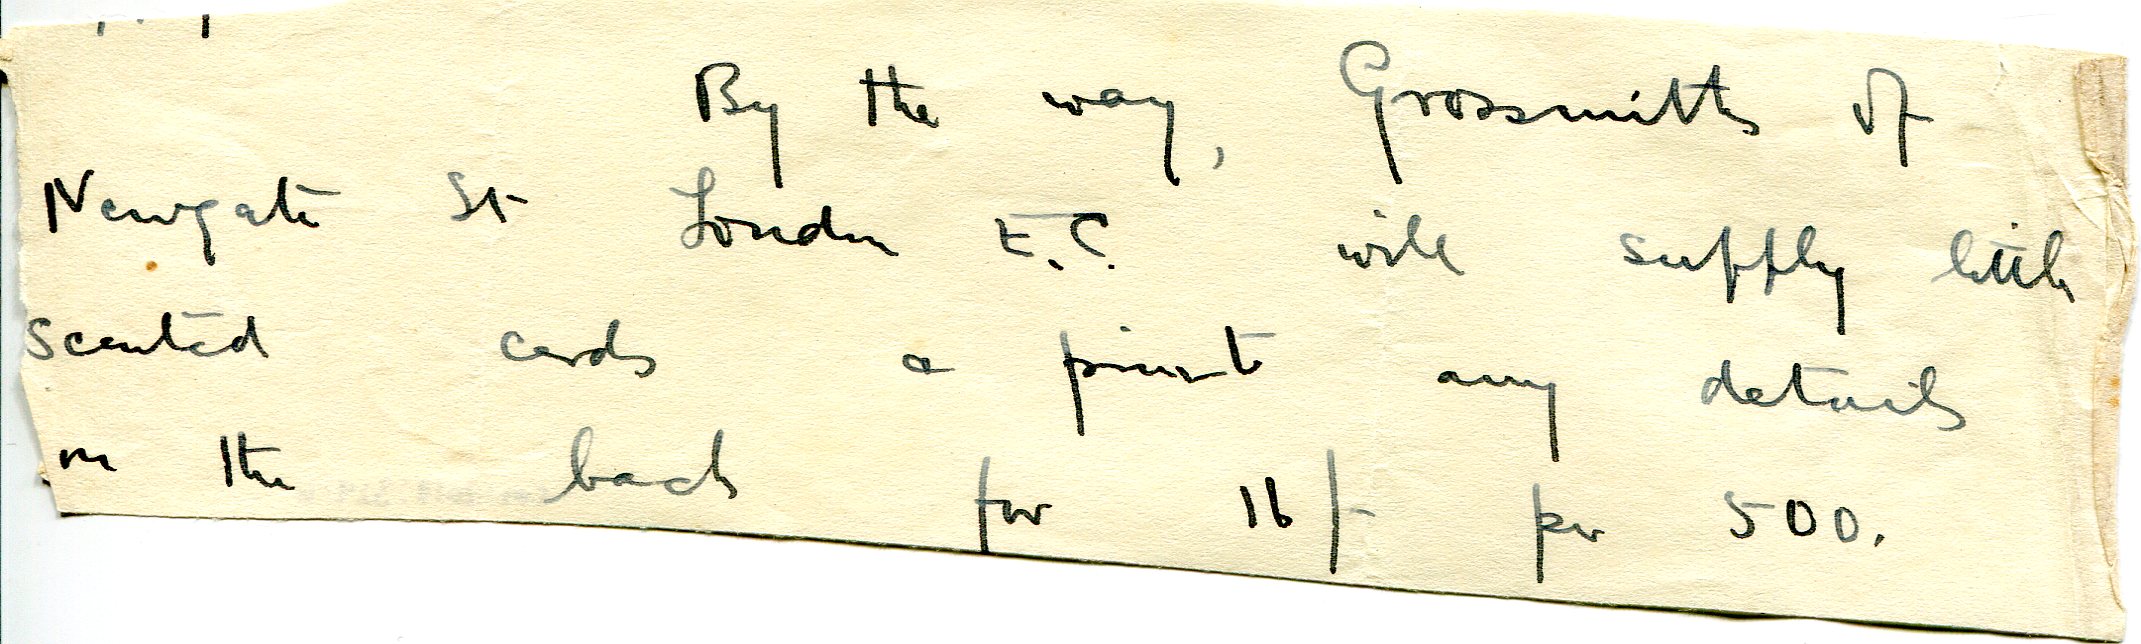 By the way, Grossmiths of
Newgate St London E.C. will supply little
scented cards & print any details
on the back for 16/- per 500.